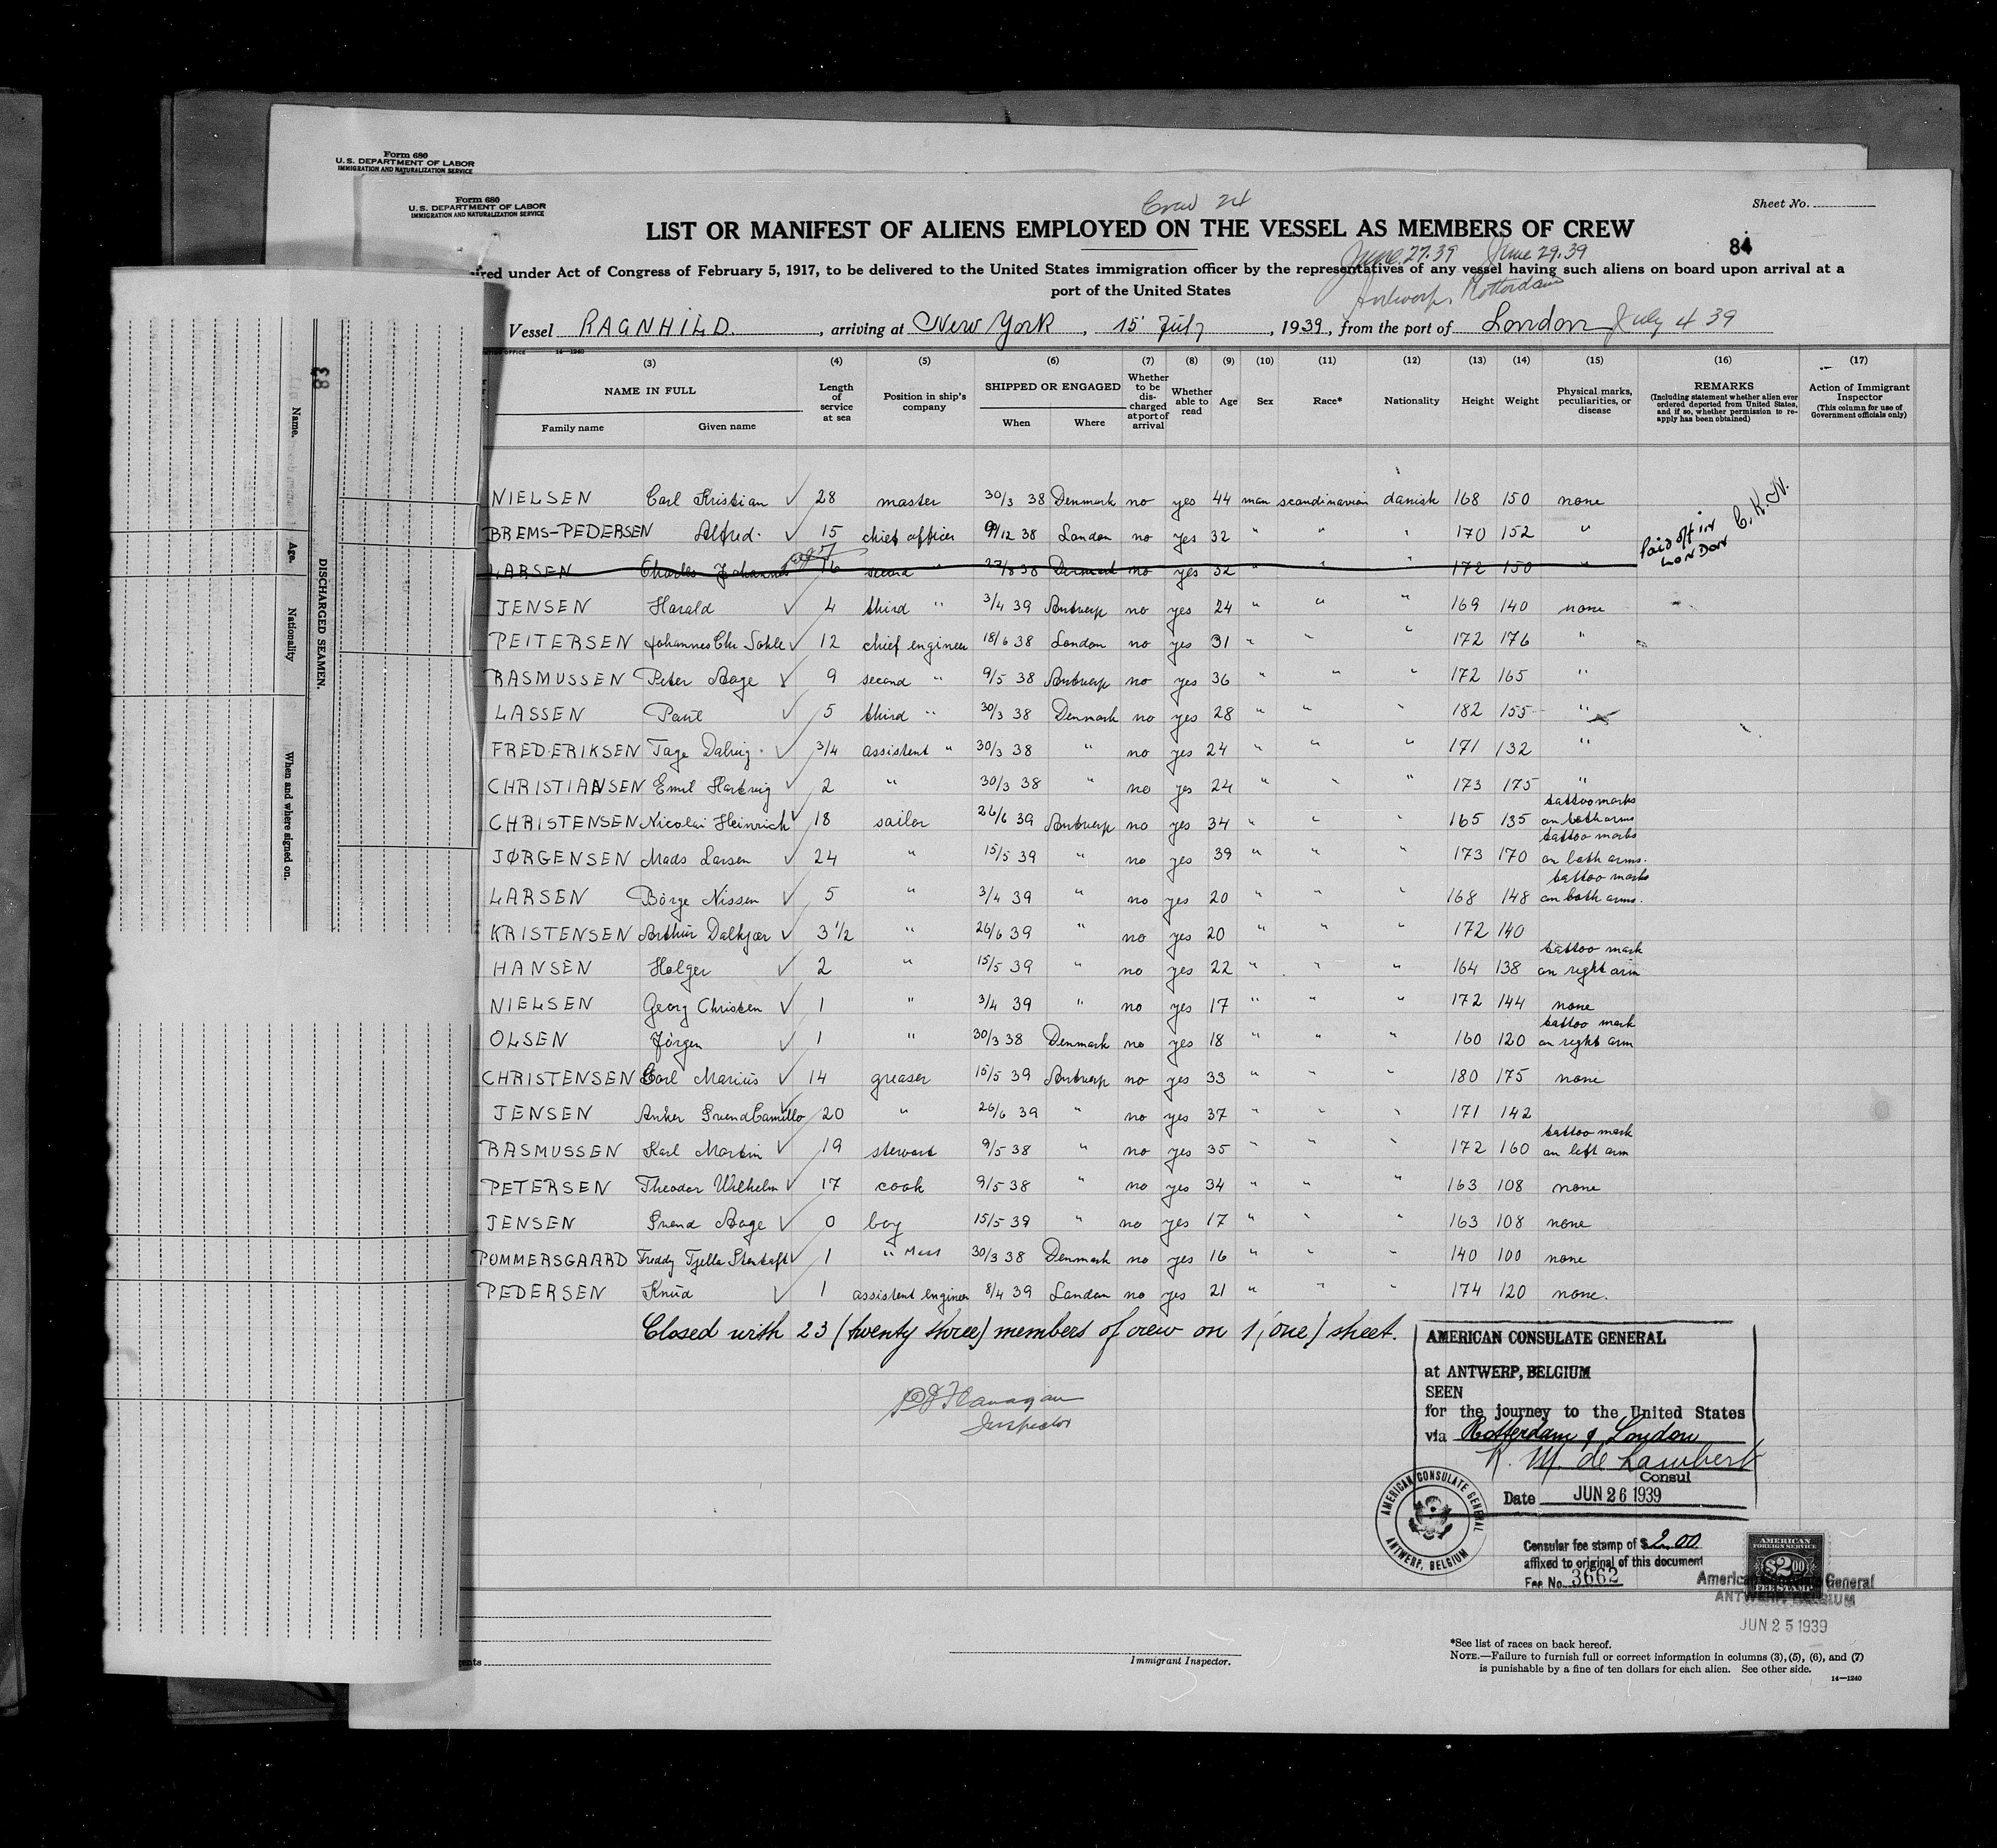 Form 680
U. S. DEPARTMENT OF LABOR
IMMIGRATION AND NATURALIZATION SERVICE
Form 680
U. S. DEPARTMENT OF LABOR
IMMIGRATION AND NATURALIZATION SERVICE
Sheet No.
Crew 24
LIST OR MANIFEST OF ALIENS EMPLOYED ON THE VESSEL AS MEMBERS OF CREW
84
June 27.39 June 29.39
ired under Act of Congress of February 5, 1917, to be delivered to the United States immigration officer by the representatives of any vessel having such aliens on board upon arrival at a
port of the United States
Antwerp, Rotterdam
Vessel RAGNHILD. , arriving at New York , 15' July , 1939, from the port of London July 4 39
14—1240
(3) (4) (5) (6) (7) (8) (9) (10) (11) (12) (13) (14) (15) (16) (17)
NAME IN FULL Family name Given name
Length of service at sea
Position in ship's company
SHIPPED OR ENGAGED When Where
Whether to be discharged at port of arrival
Whether able to read
Age
Sex
Race*
Nationality
Height
Weight
Physical marks, peculiarities, or disease
REMARKS (Including statement whether alien ever ordered deported from United States, and if so, whether permission to reapply has been obtained)
Action of Immigrant Inspector (This column for use of Government officials only)
NIELSEN Carl Kristian ✓ 28 master 30/3 38 Denmark no yes 44 man scandinavian danish 168 150 none
BREMS-PEDERSEN Alfred. ✓ 15 chief officer 9/12 38 London no yes 32 " " " 170 152 "
Paid off in LONDON C.K.N.
LARSEN Charles Johannes 16 second " 27/8 38 Denmark no yes 32 " " " 172 150 "
JENSEN Harald ✓ 4 third " 3/4 39 Antwerp no yes 24 " " " 169 140 none
PEITERSEN Johannes Chr Sohle ✓ 12 chief engineer 18/6 38 London no yes 31 " " " 172 176 "
RASMUSSEN Peter Aage ✓ 9 second " 9/5 38 Antwerp no yes 36 " " " 172 165 "
LASSEN Paul ✓ 5 third " 30/3 38 Denmark no yes 28 " " " 182 155 "
FREDERIKSEN Tage Dalvig. ✓ 3/4 assistent " 30/3 38 " no yes 24 " " " 171 132 "
CHRISTIANSEN Emil Hartvig ✓ 2 " 30/3 38 " no yes 24 " " " 173 175 "
CHRISTENSEN Nicolai Heinrich ✓ 18 sailor 26/6 39 Antwerp no yes 34 " " " 165 135 tattoo marks on both arms
JØRGENSEN Mads Larsen ✓ 24 " 15/5 39 " no yes 39 " " " 173 170 tattoo marks on both arms.
LARSEN Börge Nissen ✓ 5 " 3/4 39 " no yes 20 " " " 168 148 tattoo marks on both arms.
KRISTENSEN Arthur Dalkjær ✓ 3 1/2 " 26/6 39 " no yes 20 " " " 172 140
HANSEN Holger ✓ 2 " 15/5 39 " no yes 22 " " " 164 138 tattoo mark on right arm
NIELSEN Georg Christen ✓ 1 " 3/4 39 " no yes 17 " " " 172 144 none
OLSEN Jörgen ✓ 1 " 30/3 38 Denmark no yes 18 " " " 160 120 tattoo mark on right arm
CHRISTENSEN Carl Marius ✓ 14 greaser 15/5 39 Antwerp no yes 33 " " " 180 175 none
JENSEN Anker Svend Camillo ✓ 20 " 26/6 39 " no yes 37 " " " 171 142
RASMUSSEN Karl Martin ✓ 19 stewart 9/5 38 " no yes 35 " " " 172 160 tattoo mark on left arm
PETERSEN Theodor Wilhelm ✓ 17 cook 9/5 38 " no yes 34 " " " 163 108 none
JENSEN Svend Aage ✓ 0 boy 15/5 39 " no yes 17 " " " 163 108 none
POMMERSGAARD Freddy Tjella ✓ 1 " Mess 30/3 38 Denmark no yes 16 " " " 140 100 none
PEDERSEN Knud ✓ 1 assistent engineer 8/4 39 London no yes 21 " " " 174 120 none.
Closed with 23 (twenty three) members of crew on 1 (one) sheet.
Flanagan
Inspector
AMERICAN CONSULATE GENERAL
at ANTWERP, BELGIUM
SEEN
for the journey to the United States
via Rotterdam & London
M. de Lambert
Consul
Date JUN 26 1939
AMERICAN CONSULATE GENERAL ANTWERP, BELGIUM
Consular fee stamp of $2.00
affixed to original of this document
Fee No. 3662
AMERICAN FOREIGN SERVICE
$2.00
FEE STAMP
American Consulate General
ANTWERP, BELGIUM
JUN 25 1939
Immigrant Inspector.
*See list of races on back hereof.
NOTE.—Failure to furnish full or correct information in columns (3), (5), (6), and (7)
is punishable by a fine of ten dollars for each alien. See other side.
14—1240
83
DISCHARGED SEAMEN.
Name.
Age.
Nationality
When and where signed on.